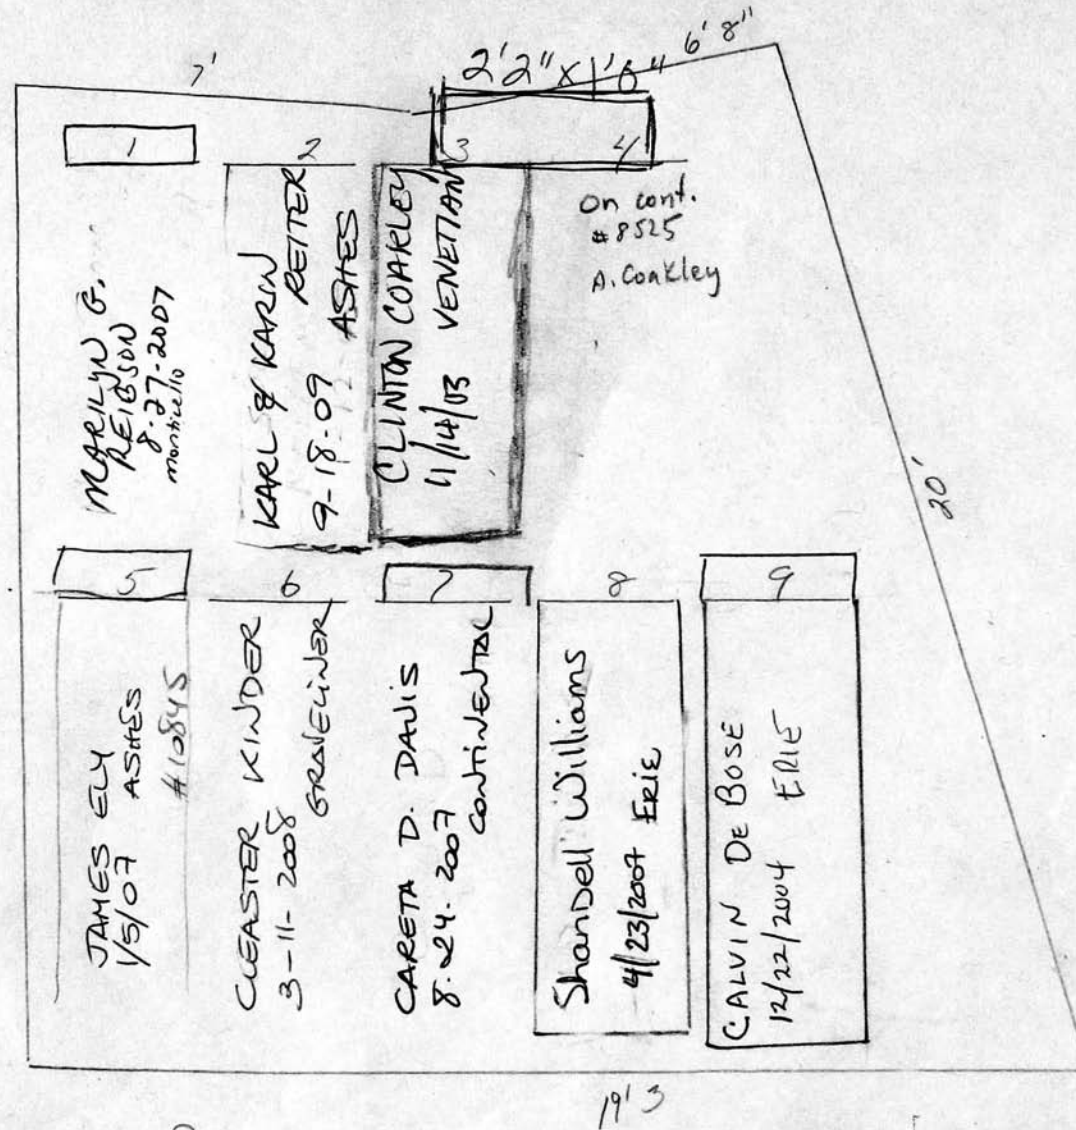 7'
2'2" x 1'6"
6'8"
1
2
3
4
MARILYN G.
REIBSON
8-27-2007
monticello
KARL & KARIN
REITER
9-18-09
ASHES
CLINTON COAKLEY
11/14/03 VENETIAN
On cont.
#8525
A. Coakley
20'
5
6
7
8
9
JAMES ELY
1/5/07 ASHES
#10845
CLEASTER KINDER
3-11-2008
GRAVELINER
CARETA D. DAVIS
8-24-2007
CONTINENTAL
Shandell Williams
4/23/2007 Erie
CALVIN DE BOSE
12/22/2004 ERIE
19' 3